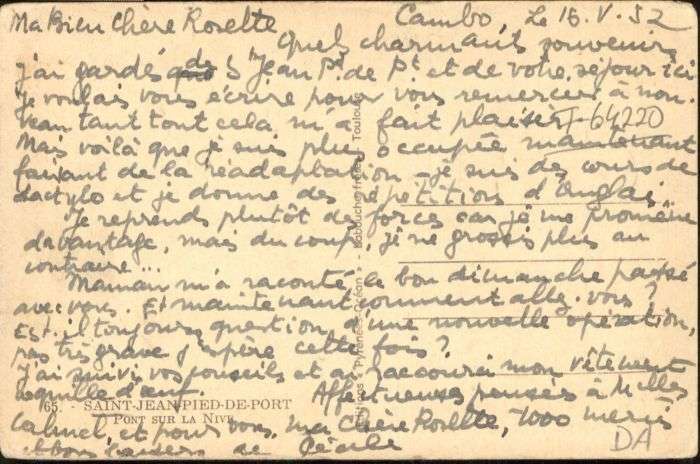 Ma Bien Chère Rosette Cambo, Le 16.V.52
Quels charmants souvenirs
j'ai gardés de St Jean Pt. de Pt. et de votre séjour ici
Je voulais vous écrire pour vous remercier à nou-
veau tant tout cela m'a fait plaisir.
F-64220
Mais voilà que je suis plus occupée maintenant
faisant de la réadaptation - je suis des cours de
dactylo et je donne des répétitions d'Anglais..
Je reprends plutôt des forces car je me promène
davantage, mais du coup, je ne grossis plus au
contraire...
Maman m'a raconté le bon dimanche passé
avec vous. Et maintenant comment allez-vous ?
Est-il toujours question d'une nouvelle opération,
pas très grave j'espère cette fois ?
J'ai suivi vos conseils et ai raccourci mon vêtement
coquille d'œuf.
Affectueuses pensées à Melles
65. - SAINT-JEAN-PIED-DE-PORT
PONT SUR LA NIVE
et pour vous, ma Chère Rosette, 1000 mercis
et bons baisers de Cécile
DA
"Pyrénées-Océan" - Labouche frères, Toulouse